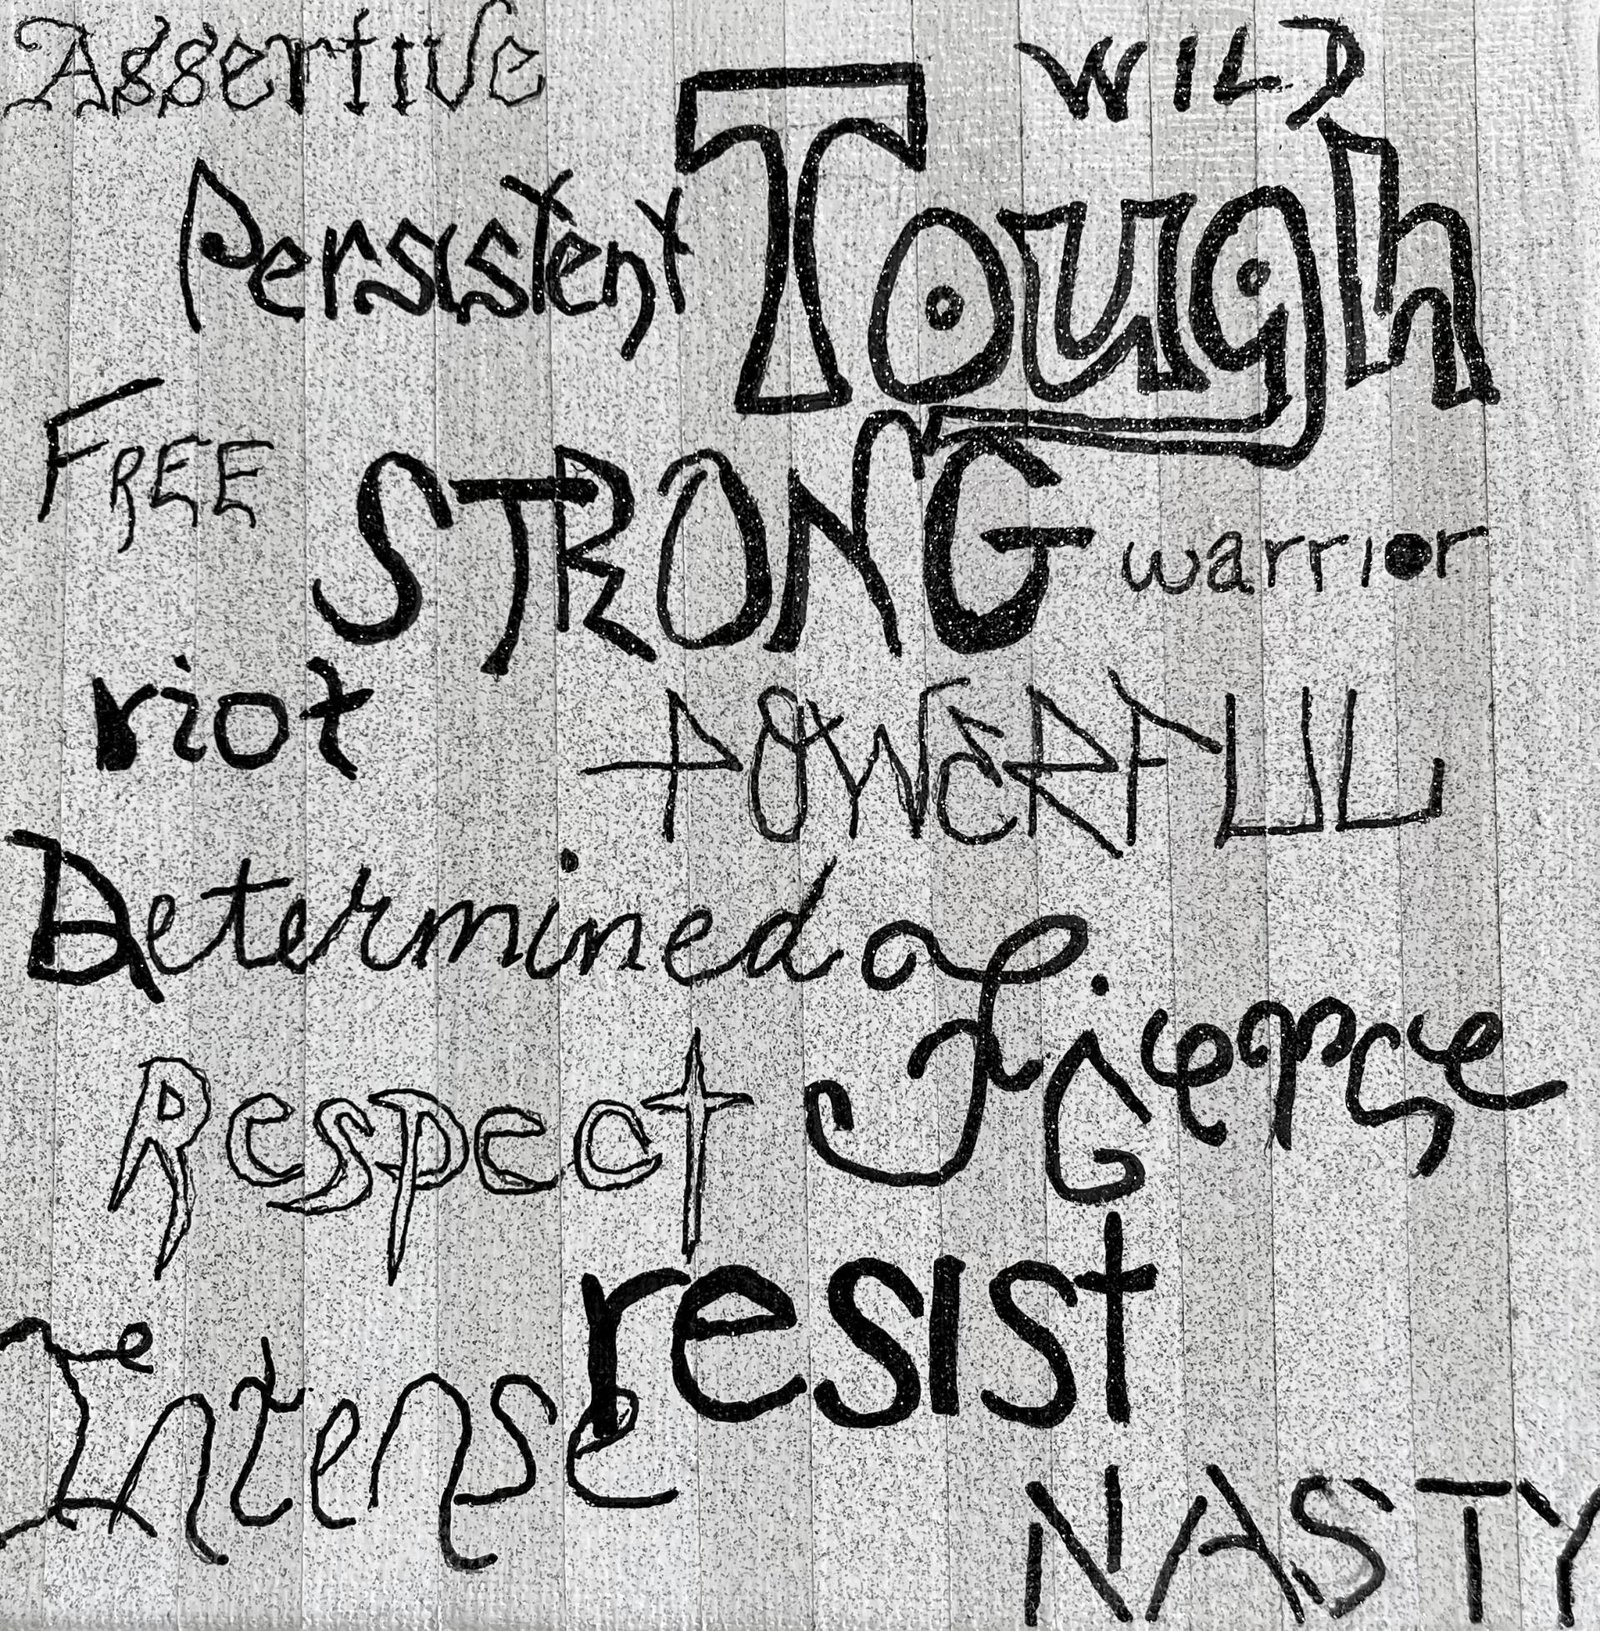 Assertive
WILD
Persistent
Tough
FREE
STRONG
warrior
riot
POWERFUL
Determined
Fierce
Respect
resist
Intense
NASTY